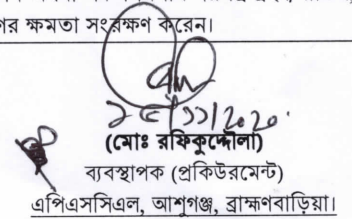 ক্ষমতা সংরক্ষণ করেন।
(মোঃ রফিকুদ্দৌলা)
ব্যবস্থাপক (প্রকিউরমেন্ট)
এপিএসসিএল, আশুগঞ্জ, ব্রাহ্মণবাড়িয়া।